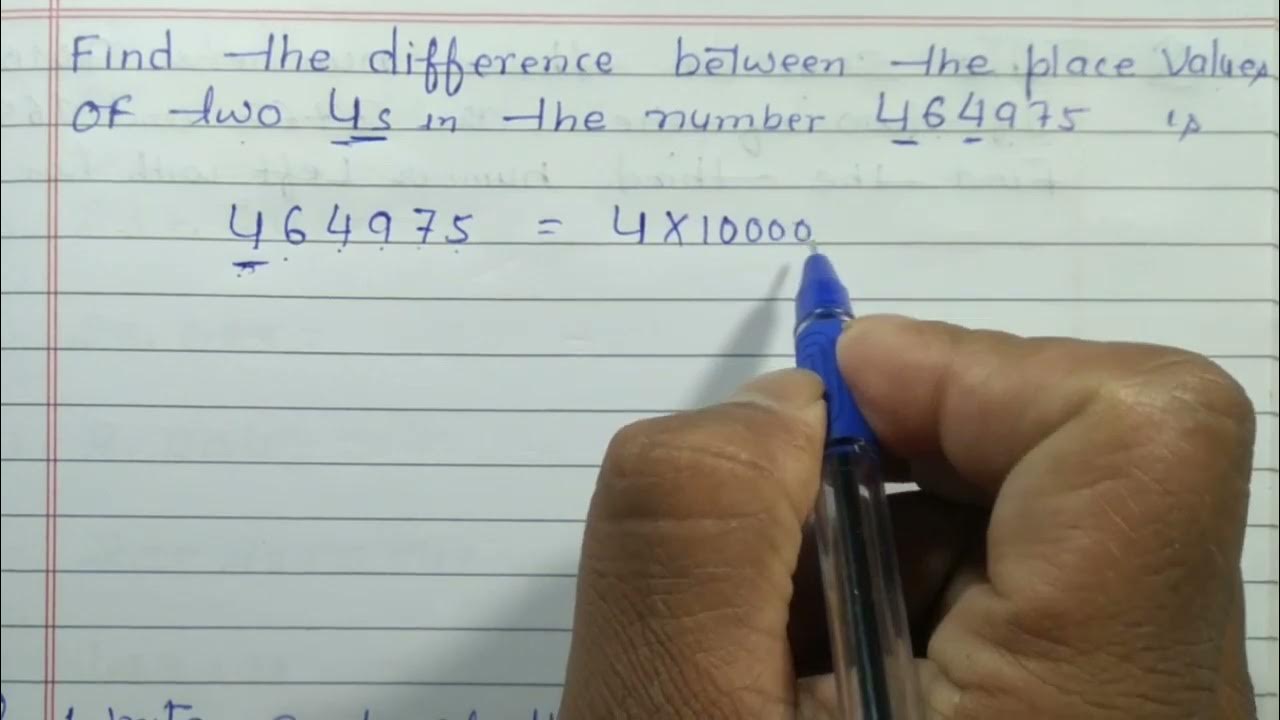 Find the difference between the place values
of two 4s in the number 464975 is
464975 = 4×10000